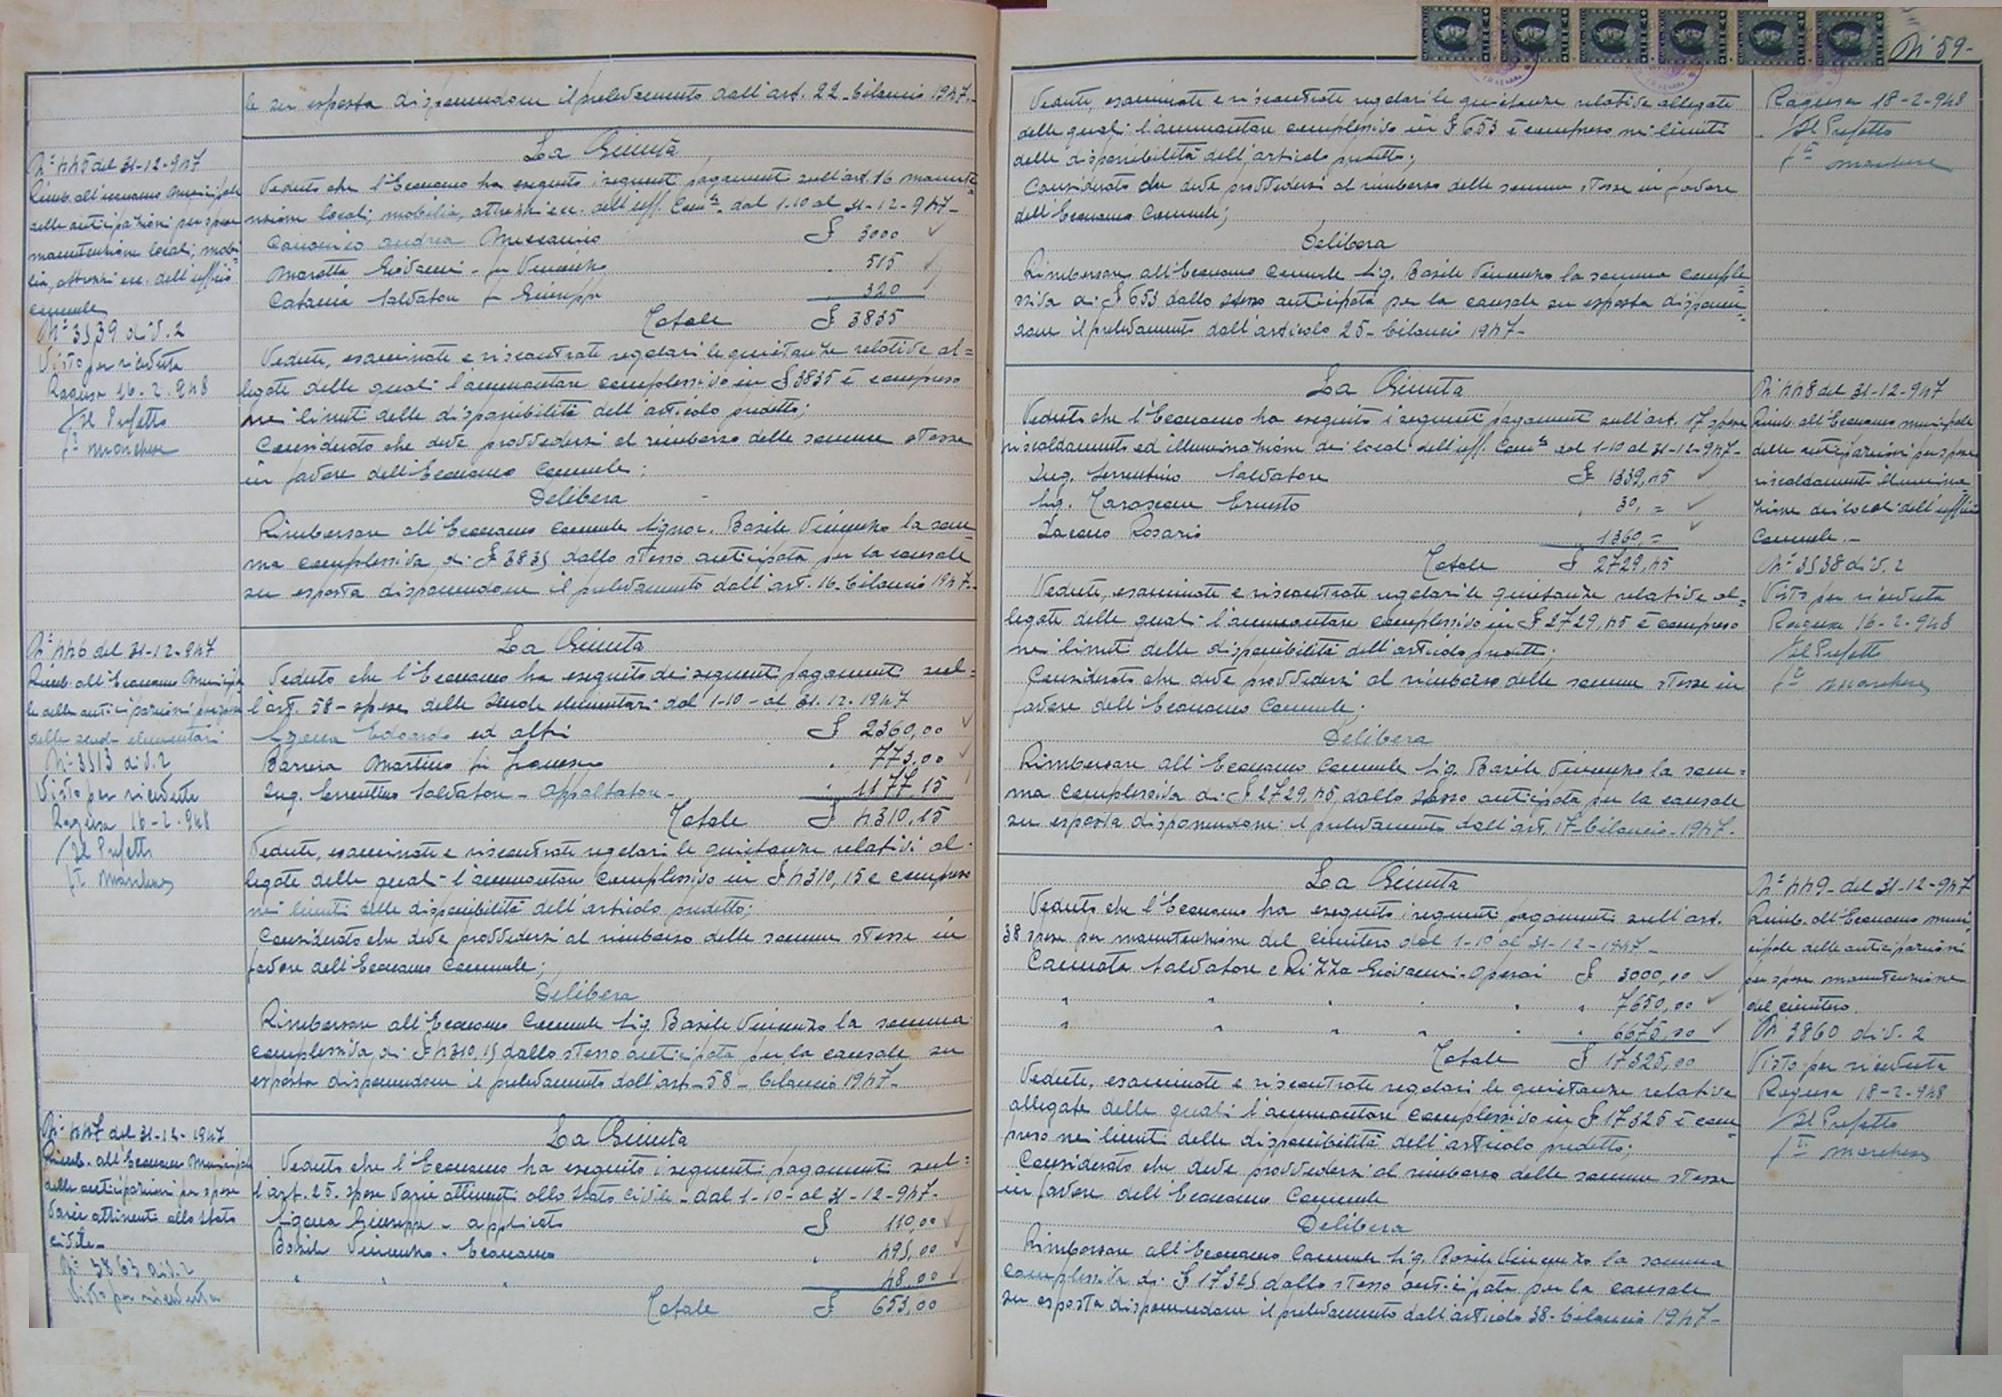 le su esposta disponendone il prelevamento dall'art. 22 - bilancio 1947.-
N° 445 del 31-12-947
Rimb. all'economo Municipale
delle anticipazioni per spese
manutenzione locali, mobi
lia, attrezzi ecc. dell'ufficio
comunale
N° 3539 div. 2
Visto per ricevuta
Ragusa 16-2-948
Il Prefetto
f.to Marchese
La Giunta
Veduto che l'Economo ha eseguito i seguenti pagamenti sull'art. 16 manute=
nzione locali, mobilia, attrezzi ecc. dell'uff. Com.le dal 1-10 al 31-12-947-
Canonico Andrea Meccanico £ 3000
Marotta Giovanni - fu Vincenzo . 515
Catania Salvatore fu Giuseppe . 320
Totale £ 3835
Vedute, esaminate e riscontrate regolari le quietanze relative al=
legate delle quali l'ammontare complessivo in £ 3835 è compreso
nei limiti delle disponibilità dell'articolo predetto;
Considerato che deve provvedersi al rimborso delle somme stesse
in favore dell'Economo Comunale;
Delibera
Rimborsare all'Economo Comunale Signor. Basile Vincenzo la som=
ma complessiva di £ 3835 dallo stesso anticipata per la causale
su esposta disponendone il prelevamento dall'art. 16 - bilancio 1947.-
N° 446 del 31-12-947
Rimb. all'Economo Municipa
le delle anticipazioni per spese
delle scuole elementari
N° 3513 div. 2
Visto per ricevuta
Ragusa 16-2-948
Il Prefetto
f.to Marchese
La Giunta
Veduto che l'Economo ha eseguito dei seguenti pagamenti sul=
l'art. 58 - spese delle Scuole elementari dal 1-10 - al 31-12-1947
Edoardo ed altri £ 2360,00
Barrera Martino fu Francesco . 773,00
Ing. Serrentino Salvatore - Appaltatore - . 1177,15
Totale £ 4310,15
Vedute, esaminate e riscontrate regolari le quietanze relative al-
legate delle quali l'ammontare complessivo in £ 4310,15 è compreso
nei limiti delle disponibilità dell'articolo predetto;
Considerato che deve provvedersi al rimborso delle somme stesse in
favore dell'Economo Comunale;
Delibera
Rimborsare all'Economo Comunale Sig. Basile Vincenzo la somma
complessiva di £ 4310,15 dallo stesso anticipata per la causale su
esposta disponendone il prelevamento dall'art - 58 - bilancio 1947.-
N° 447 del 31-12-1947
Rimb. all'Economo Municipale
delle anticipazioni per spese
varie attinenti allo stato
civile -
N° 3863 div. 2
Visto per ricevuta
La Giunta
Veduto che l'Economo ha eseguito i seguenti pagamenti sul=
l'art. 25. spese varie attinenti allo stato civile - dal 1-10 - al 31-12-947.
Giuseppe - applicato £ 110,00
Basile Vincenzo - Economo . 495,00
" " " 48,00
Totale £ 653,00
N° 59-
Vedute, esaminate e riscontrate regolari le quietanze relative allegate
delle quali l'ammontare complessivo in £ 653 è compreso nei limiti
delle disponibilità dell'articolo predetto;
Considerato che deve provvedersi al rimborso delle somme stesse in favore
dell'Economo Comunale;
Delibera
Rimborsare all'Economo Comunale Sig. Basile Vincenzo la somma comple=
ssiva di £ 653 dallo stesso anticipata per la causale su esposta disponen=
done il prelevamento dall'articolo 25 - bilancio 1947-
Ragusa 18-2-948
Il Prefetto
f.to Marchese
La Giunta
Veduto che l'Economo ha eseguito i seguenti pagamenti sull'art. 17 spese
riscaldamento ed illuminazione dei locali dell'uff. Com.le dal 1-10 al 31-12-947-
Ing. Serrentino Salvatore £ 1339,45
Sig. Tarascone Ernesto . 30, =
Iacono Rosario 1360, =
Totale £ 2729,45
Vedute, esaminate e riscontrate regolari le quietanze relative al=
legate delle quali l'ammontare complessivo in £ 2729,45 è compreso
nei limiti delle disponibilità dell'articolo predetto;
Considerato che deve provvedersi al rimborso delle somme stesse in
favore dell'Economo Comunale;
Delibera
Rimborsare all'Economo Comunale Sig. Basile Vincenzo la som=
ma complessiva di £ 2729,45 dallo stesso anticipata per la causale
su esposta disponendone il prelevamento dall'art. 17 - bilancio - 1947.
N° 448 del 31-12-947
Rimb. all'Economo municipale
delle anticipazioni per spese
riscaldamento illumina
zione dei locali dell'ufficio
Comunale. -
N° 3538 div. 2
Visto per ricevuta
Ragusa 16-2-948
Il Prefetto
f.to Marchese
La Giunta
Veduto che l'Economo ha eseguito i seguenti pagamenti sull'art.
38 spese per manutenzione del cimitero dal 1-10 al 31-12-1947-
Cannata Salvatore e Rizza Giovanni - Operai £ 3000,00
" " " " " 7650,00
" " " " " 6675,00
Totale £ 17325,00
Vedute, esaminate e riscontrate regolari le quietanze relative
allegate delle quali l'ammontare complessivo in £ 17325 è com=
preso nei limiti delle disponibilità dell'articolo predetto;
Considerato che deve provvedersi al rimborso delle somme stesse
in favore dell'Economo Comunale
Delibera
Rimborsare all'Economo Comunale Sig. Basile Vincenzo la somma
complessiva di £ 17325 dallo stesso anticipata per la causale
su esposta disponendone il prelevamento dall'articolo 38 - bilancio 1947-
N° 449 - del 31-12-947
Rimb. all'Economo muni
cipale delle anticipazioni
per spese manutenzione
del cimitero.
N° 3860 div. 2
Visto per ricevuta
Ragusa 18-2-948
Il Prefetto
f.to Marchese